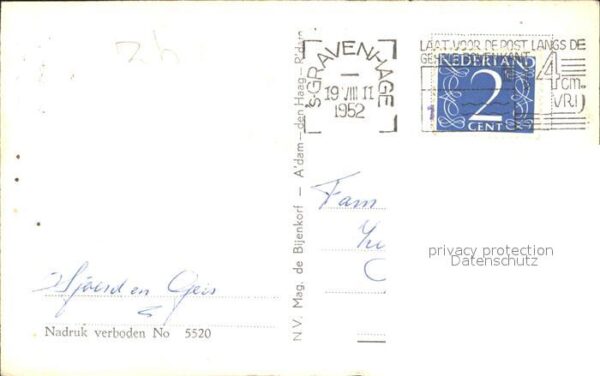 'SGRAVENHAGE
19 VIII 11
1952
LAAT VOOR DE POST LANGS DE
4 cm.
VRIJ
NEDERLAND
2
CENT
N.V. Mag. de Bijenkorf — A'dam—den Haag—R'dam
Fam
privacy protection
Datenschutz
Sjoerd en
Nadruk verboden No 5520